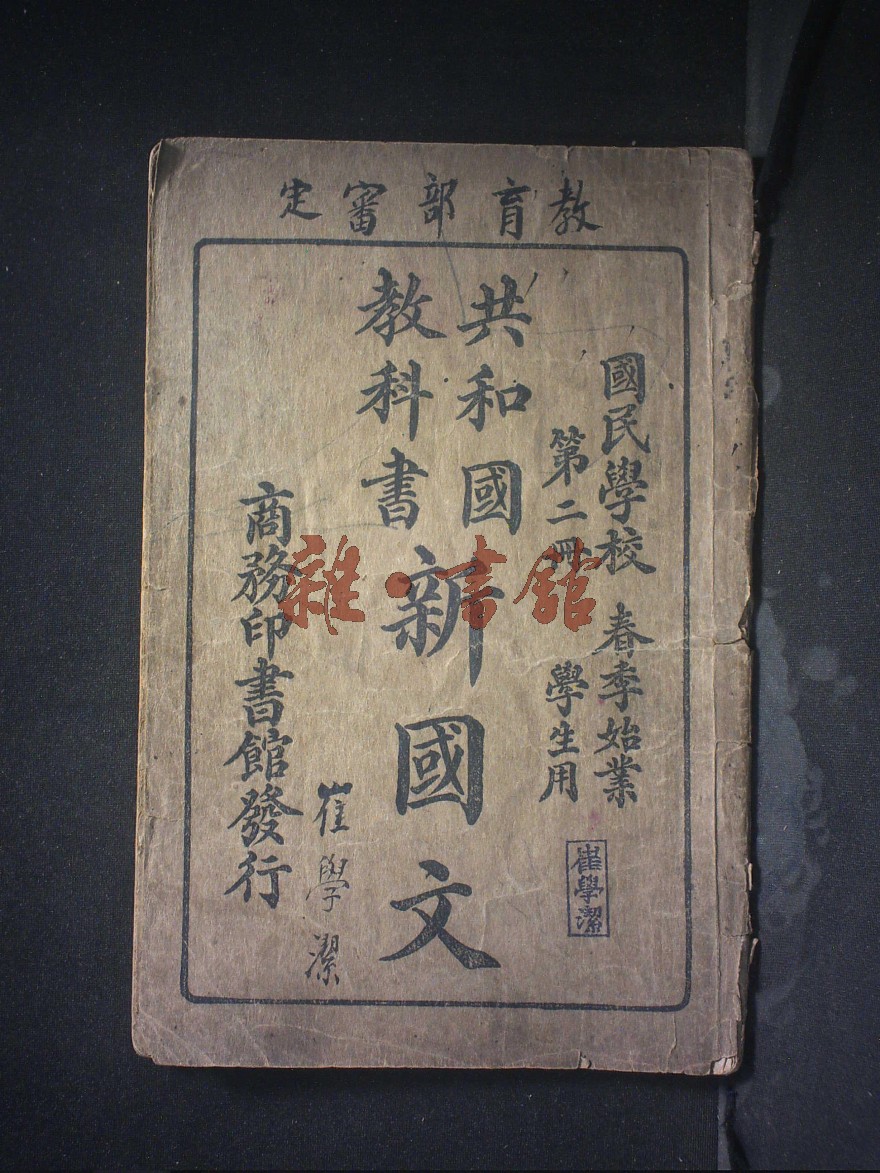 教育部審定
國民學校 春季始業
第二冊 學生用
崔學潔
共和國
教科書
新國文
崔學潔
商務印書館發行
雜·書館